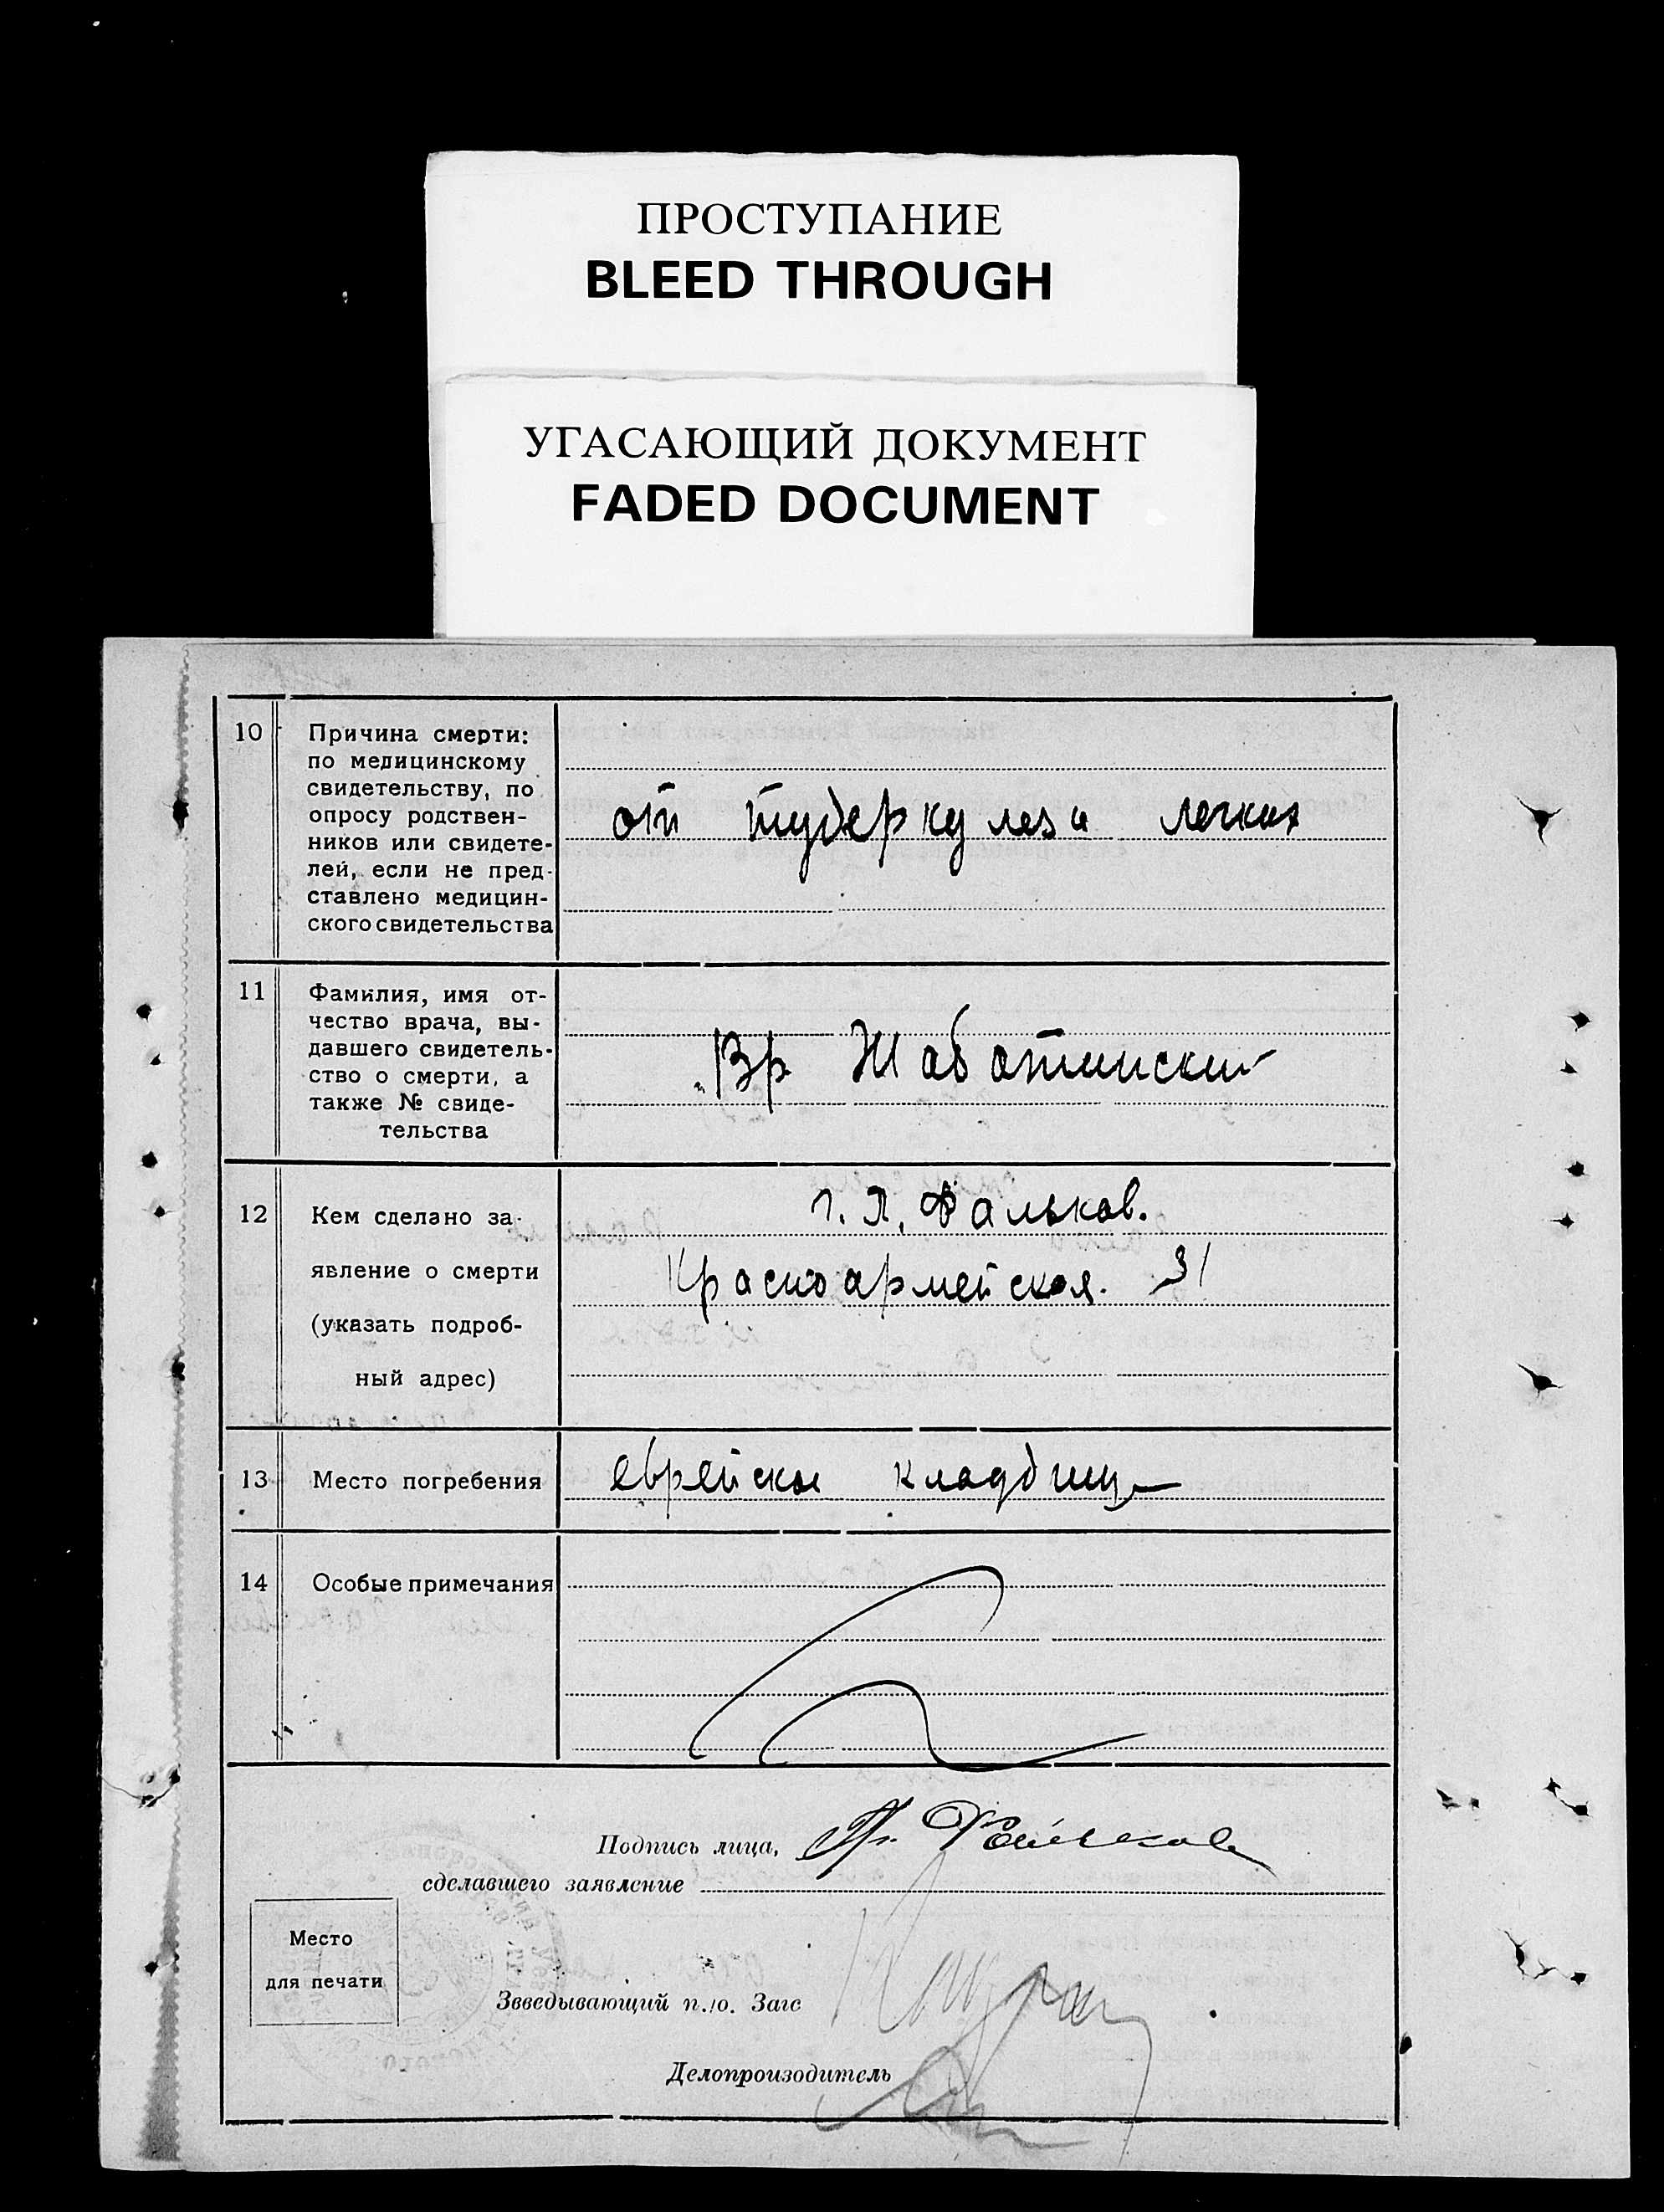 ПРОСТУПАНИЕ
BLEED THROUGH
УГАСАЮЩИЙ ДОКУМЕНТ
FADED DOCUMENT
10 Причина смерти:
по медицинскому
свидетельству, по
опросу родствен-
ников или свидете-
лей, если не пред-
ставлено медицин-
ского свидетельства
от туберкулеза легких
11 Фамилия, имя от-
чество врача, вы-
давшего свидетель-
ство о смерти, а
также № свиде-
тельства
Вр Жаботинский
12 Кем сделано за-
явление о смерти
(указать подроб-
ный адрес)
г. Л. Фальков.
Красноармейская. 31
13 Место погребения
еврейское кладбище
14 Особые примечания
Подпись лица,
сделавшего заявление
Место
для печати
Зaведывающий п./о. Загс
Делопроизодитель